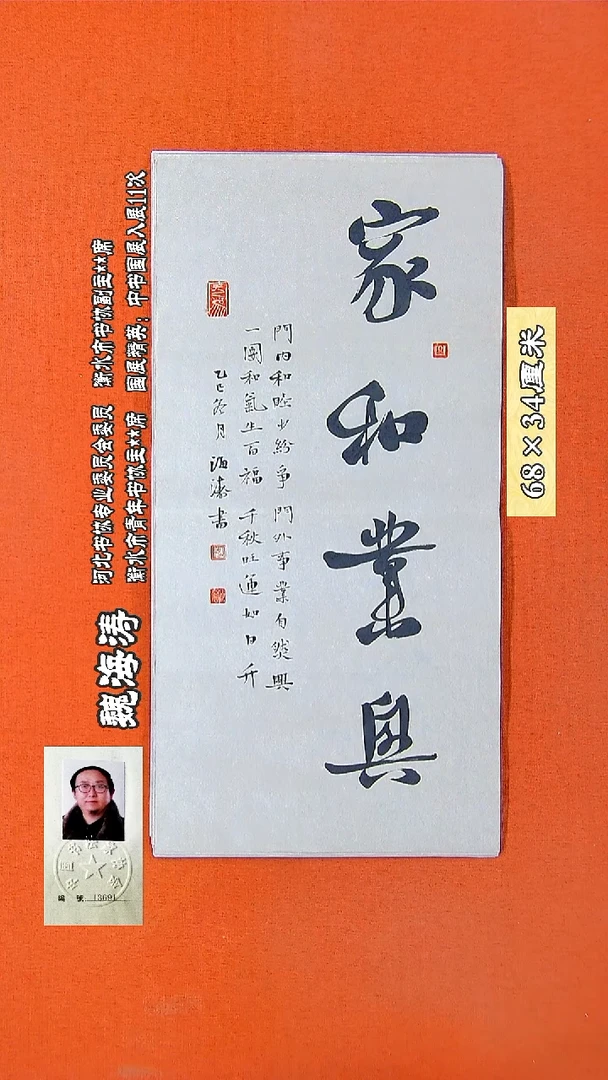 家和業興
門內和睦少紛爭 門外事業有發興
一團和氣生百福 千秋旺運如日升
乙巳冬月 海濤書
68×34厘米
河北书协专业委员会委员 衡水市书协副主**席
衡水市青年书协主**席 国展精英：中书国展入展11次
魏海涛
编號 13691